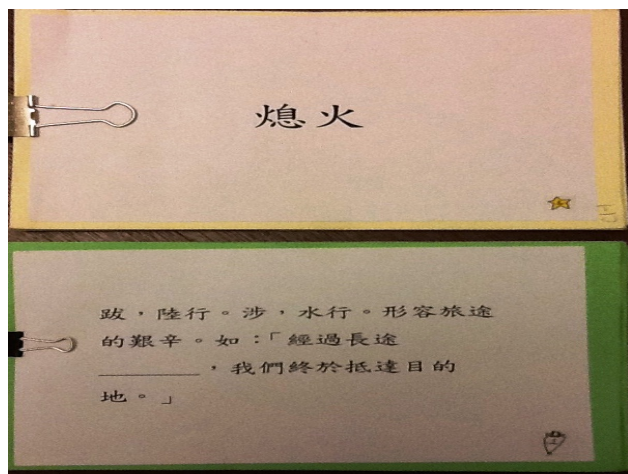 熄火
跋，陸行。涉，水行。形容旅途
的艱辛。如：「經過長途
＿＿＿＿，我們終於抵達目的
地。」